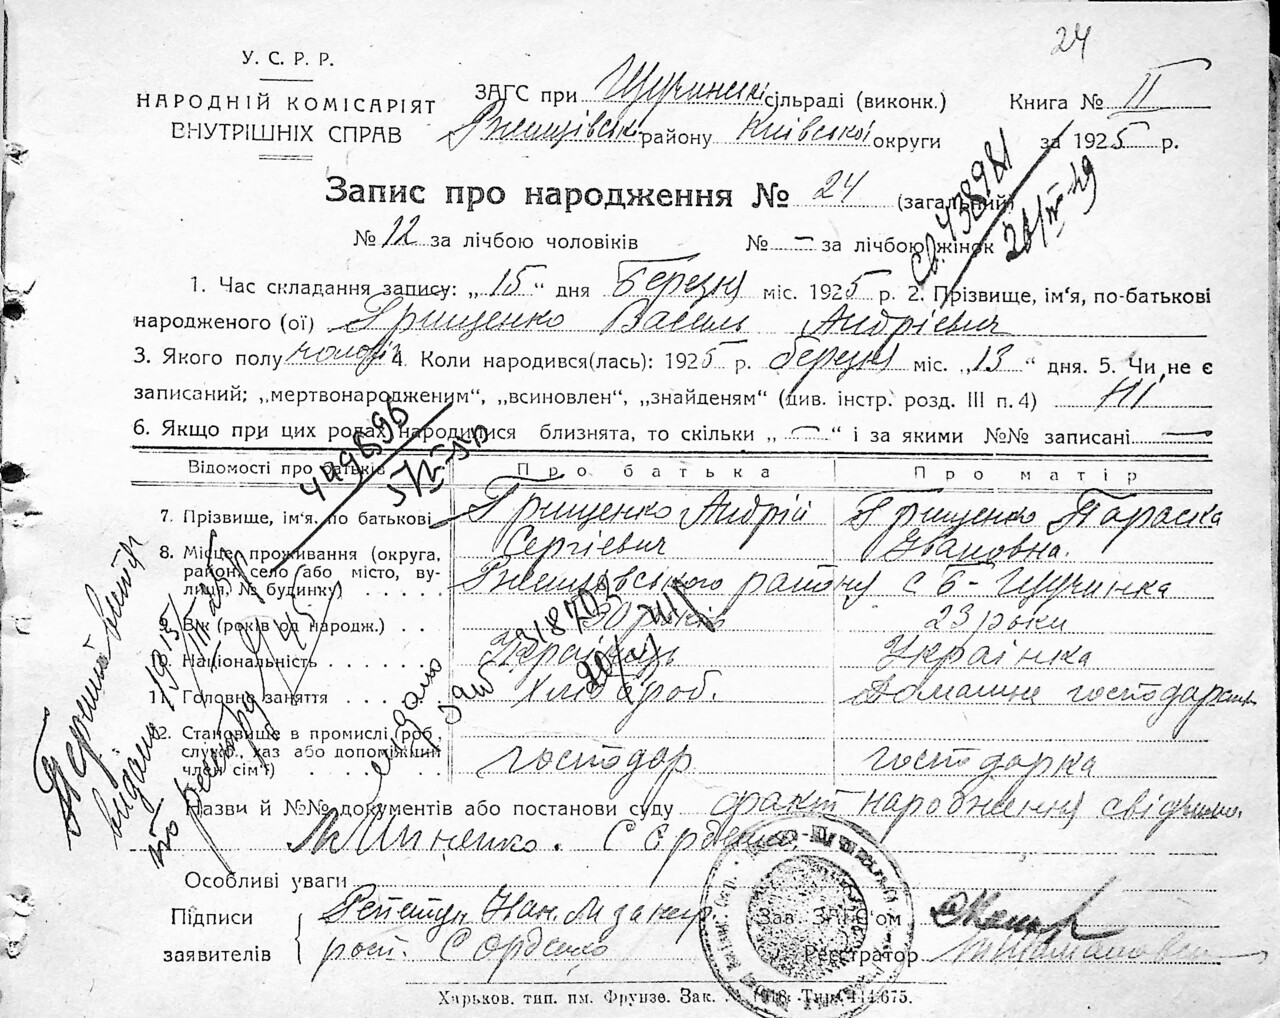 24
У. С. Р. Р.
НАРОДНІЙ КОМІСАРІЯТ
ВНУТРІШНІХ СПРАВ
ЗАГС при Щучинській сільраді (виконк.)
Ржищівськ. району Київської округи
Книга № II
за 1925 р.
Запис про народження № 24 (загальний)
№ 12 за лічбою чоловіків № – за лічбою жінок
1. Час складання запису: „15“ дня Березня міс. 1925 р. 2. Прізвище, ім'я, по-батькові
народженого (ої) Грищенко Василь Андріевич
3. Якого полу 4. Коли народився(лась): 1925 р. березня міс. „13“ дня. 5. Чи не є
записаний; „мертвонародженим“, „всиновлен“, „знайденям“ (див. інстр. розд. III п. 4) Ні
6. Якщо при цих родах народилися близнята, то скільки „ – “ і за якими №№ записані —
Відомості про батьків
Про батька
Про матір
7. Прізвище, ім'я, по батькові
Грищенко Андрій Сергіевич
Грищенко Параска Івановна.
8. Місце проживання (округа, район, село або місто, вулиця, № будинку)
Ржищівського району с Б-Щучинка
9. Вік (років од народж.)
30 років
23 роки
10. Національність
Українець
Українка
11. Головне заняття
Хлібороб.
Домашне господарство
12. Становище в промислі (роб., служб., хаз або допоміжний член сім'ї)
господар
господарка
Назви й №№ документів або постанови суду факт народження свідчимо.
Миненко. С Єрденко
Особливі уваги
Підписи
заявителів
Зав. ЗАГС'ом
Реєстратор
Харьков. тип. ім. Фрунзе. Зак.
св. 438981
449696
318703
видано